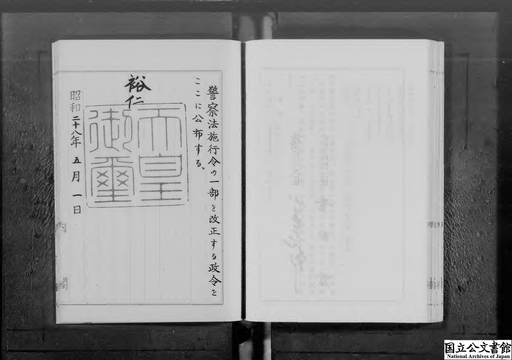 警察法施行令の一部を改正する政令を
ここに公布する。
裕仁
天皇
御璽
昭和二十八年五月一日
国立公文書館
National Archives of Japan